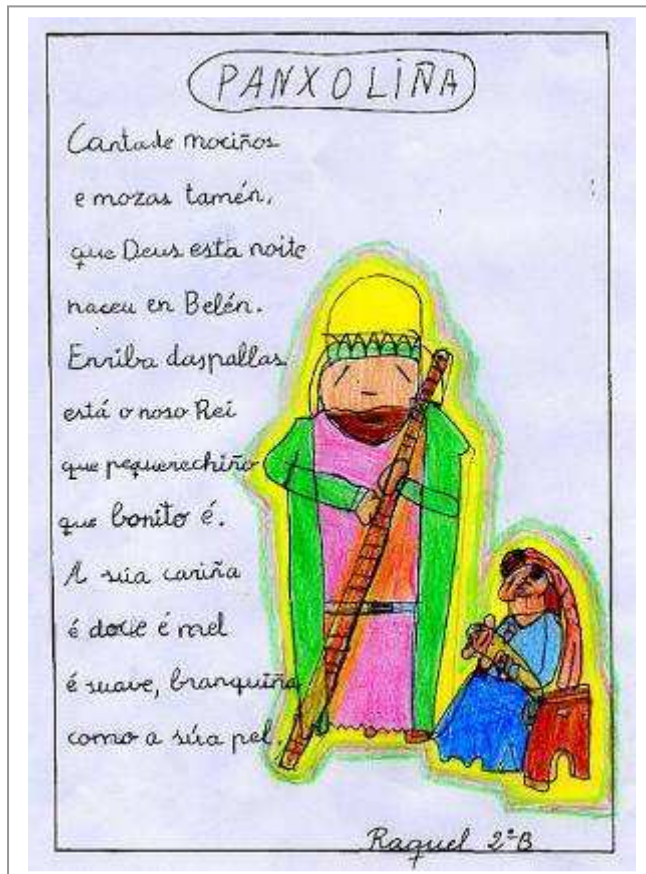 PANXOLIÑA
Cantade mociños
e mozas tamén,
que Deus esta noite
naceu en Belén.
Enriba daspallas
está o noso Rei
que pequerechiño
que bonito é.
A súa cariña
é doce é mel
é suave, branquiña
como a súa pel.
Raquel 2ºB